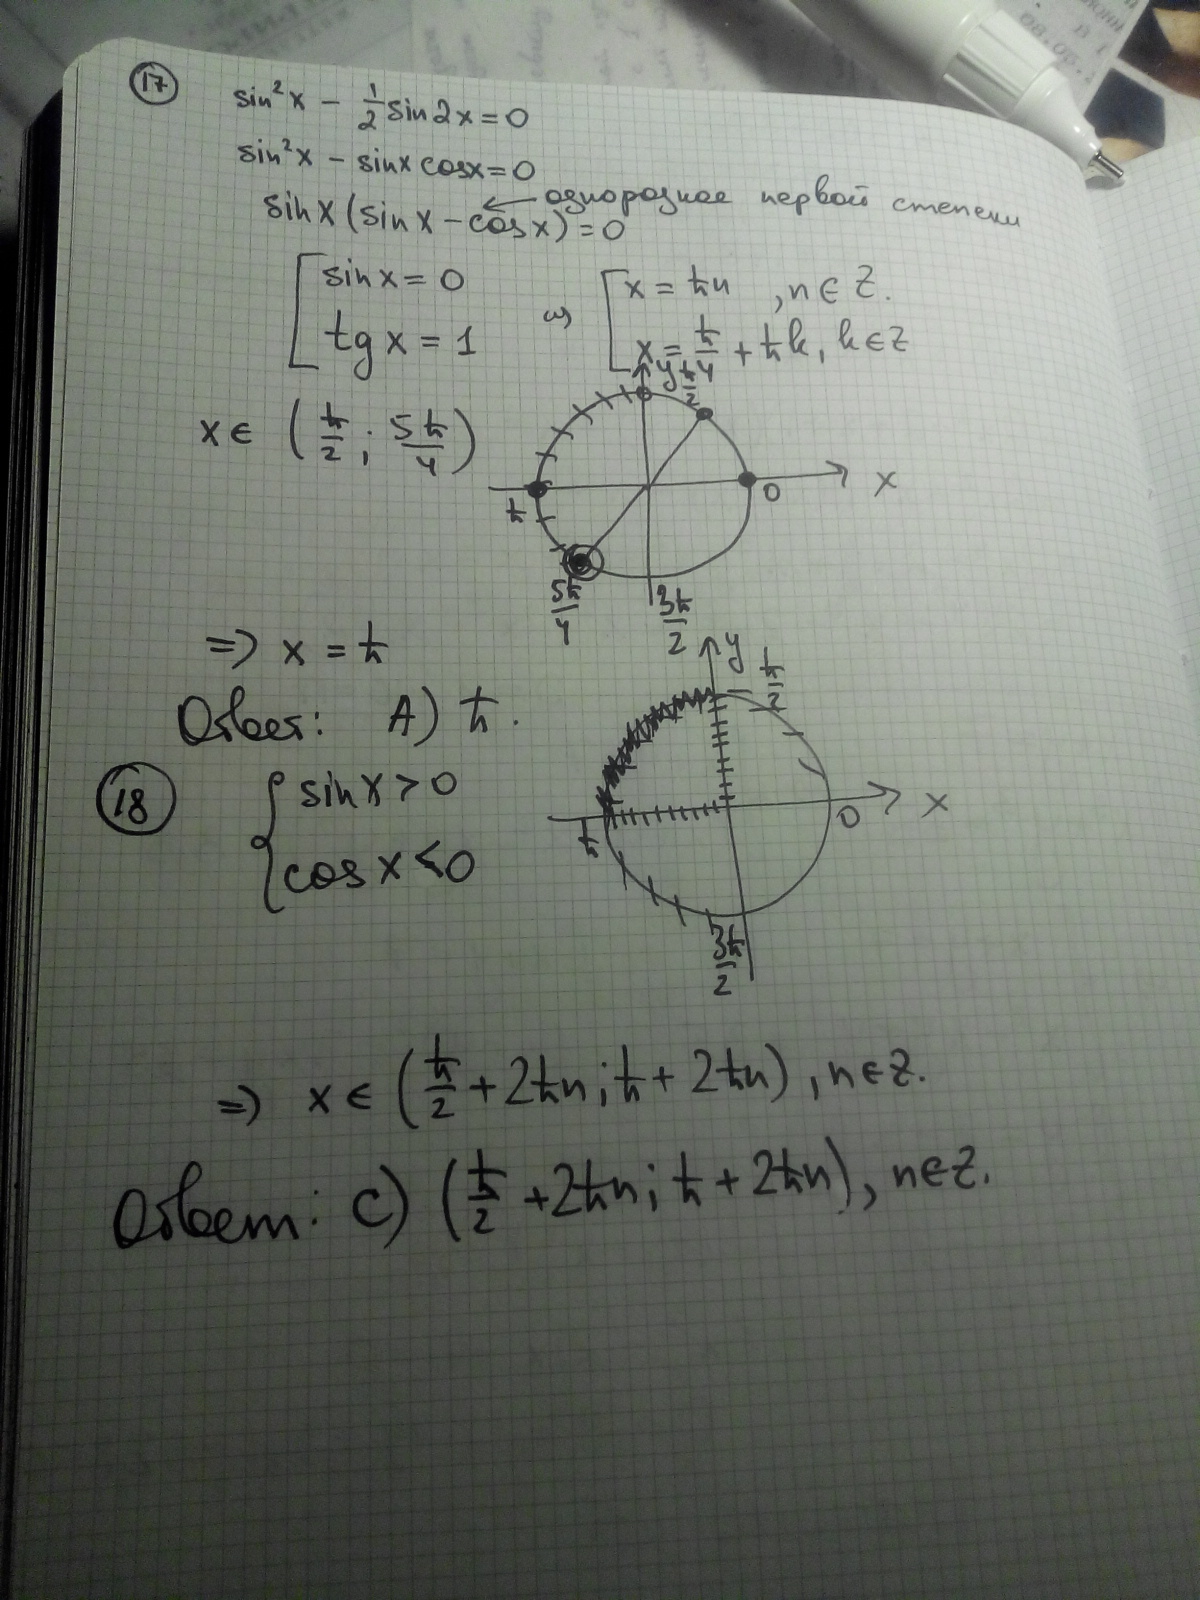 17
sin²x − 1/2 sin2x = 0
sin²x − sinx cosx = 0
sinx (sinx − cosx) = 0 ← однородное первой степени
[ sinx = 0
tgx = 1
⇔
[ x = πn , n ∈ Z.
x = π/4 + πk, k ∈ Z
x ∈ (π/2 ; 5π/4)
y
π/2
π
0
x
5π/4
3π/2
=> x = π
Ответ: A) π.
18
{ sinx > 0
cosx < 0
y
π/2
π
0
x
3π/2
=> x ∈ (π/2 + 2πn ; π + 2πn) , n ∈ Z.
Ответ: C) (π/2 + 2πn ; π + 2πn), n ∈ Z.